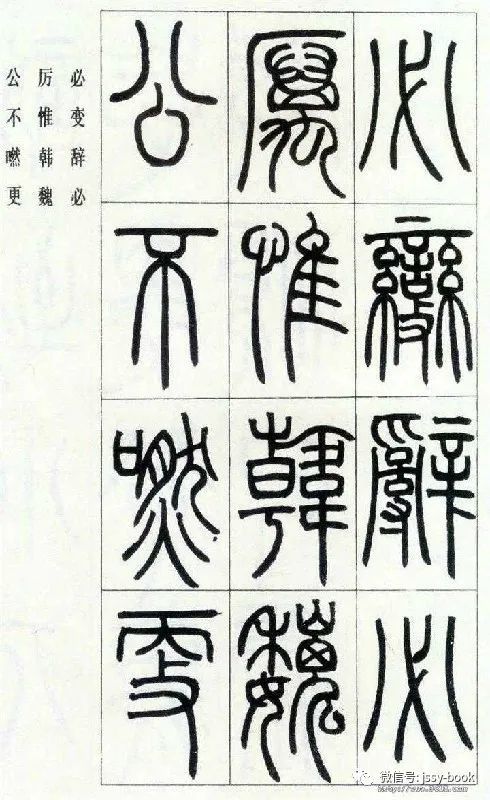 必變辭必
厲惟韓魏
公不嘫更
必变辞必
厉惟韩魏
公不嘫更
微信号: jssy-book